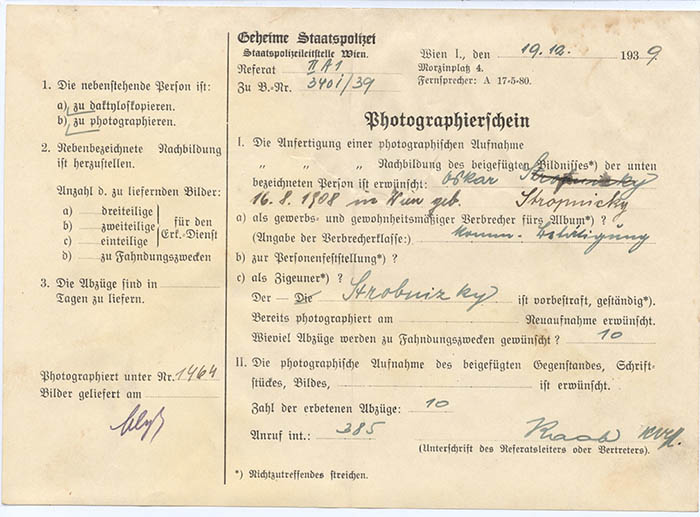 Geheime Staatspolizei
Staatspolizeileitstelle Wien.
Referat II A 1
Zu B.-Nr. 3401/39
Wien I., den 19.12. 1939.
Morzinplatz 4.
Fernsprecher: A 17-5-80.
1. Die nebenstehende Person ist:
a) zu daktyloskopieren.
b) zu photographieren.
2. Nebenbezeichnete Nachbildung
ist herzustellen.
Anzahl d. zu liefernden Bilder:
a) dreiteilige
b) zweiteilige
c) einteilige
für den
Erk.-Dienst
d) zu Fahndungszwecken
3. Die Abzüge sind in
Tagen zu liefern.
Photographiert unter Nr. 1464
Bilder geliefert am
Photographierschein
I. Die Anfertigung einer photographischen Aufnahme
„ „ „ Nachbildung des beigefügten Bildnisses*) der unten
bezeichneten Person ist erwünscht: Oskar
16.8.1908 in Wien geb. Stropnicky
a) als gewerbs- und gewohnheitsmäßiger Verbrecher fürs Album*) ?
(Angabe der Verbrecherklasse:) komm. Betätigung
b) zur Personenfeststellung*) ?
c) als Zigeuner*) ?
Der — Die Strobnizky ist vorbestraft, geständig*).
Bereits photographiert am Neuaufnahme erwünscht.
Wieviel Abzüge werden zu Fahndungszwecken gewünscht ? 10
II. Die photographische Aufnahme des beigefügten Gegenstandes, Schrift-
stückes, Bildes, ist erwünscht.
Zahl der erbetenen Abzüge: 10
Anruf int.: 385
Raab
(Unterschrift des Referatsleiters oder Vertreters).
*) Nichtzutreffendes streichen.